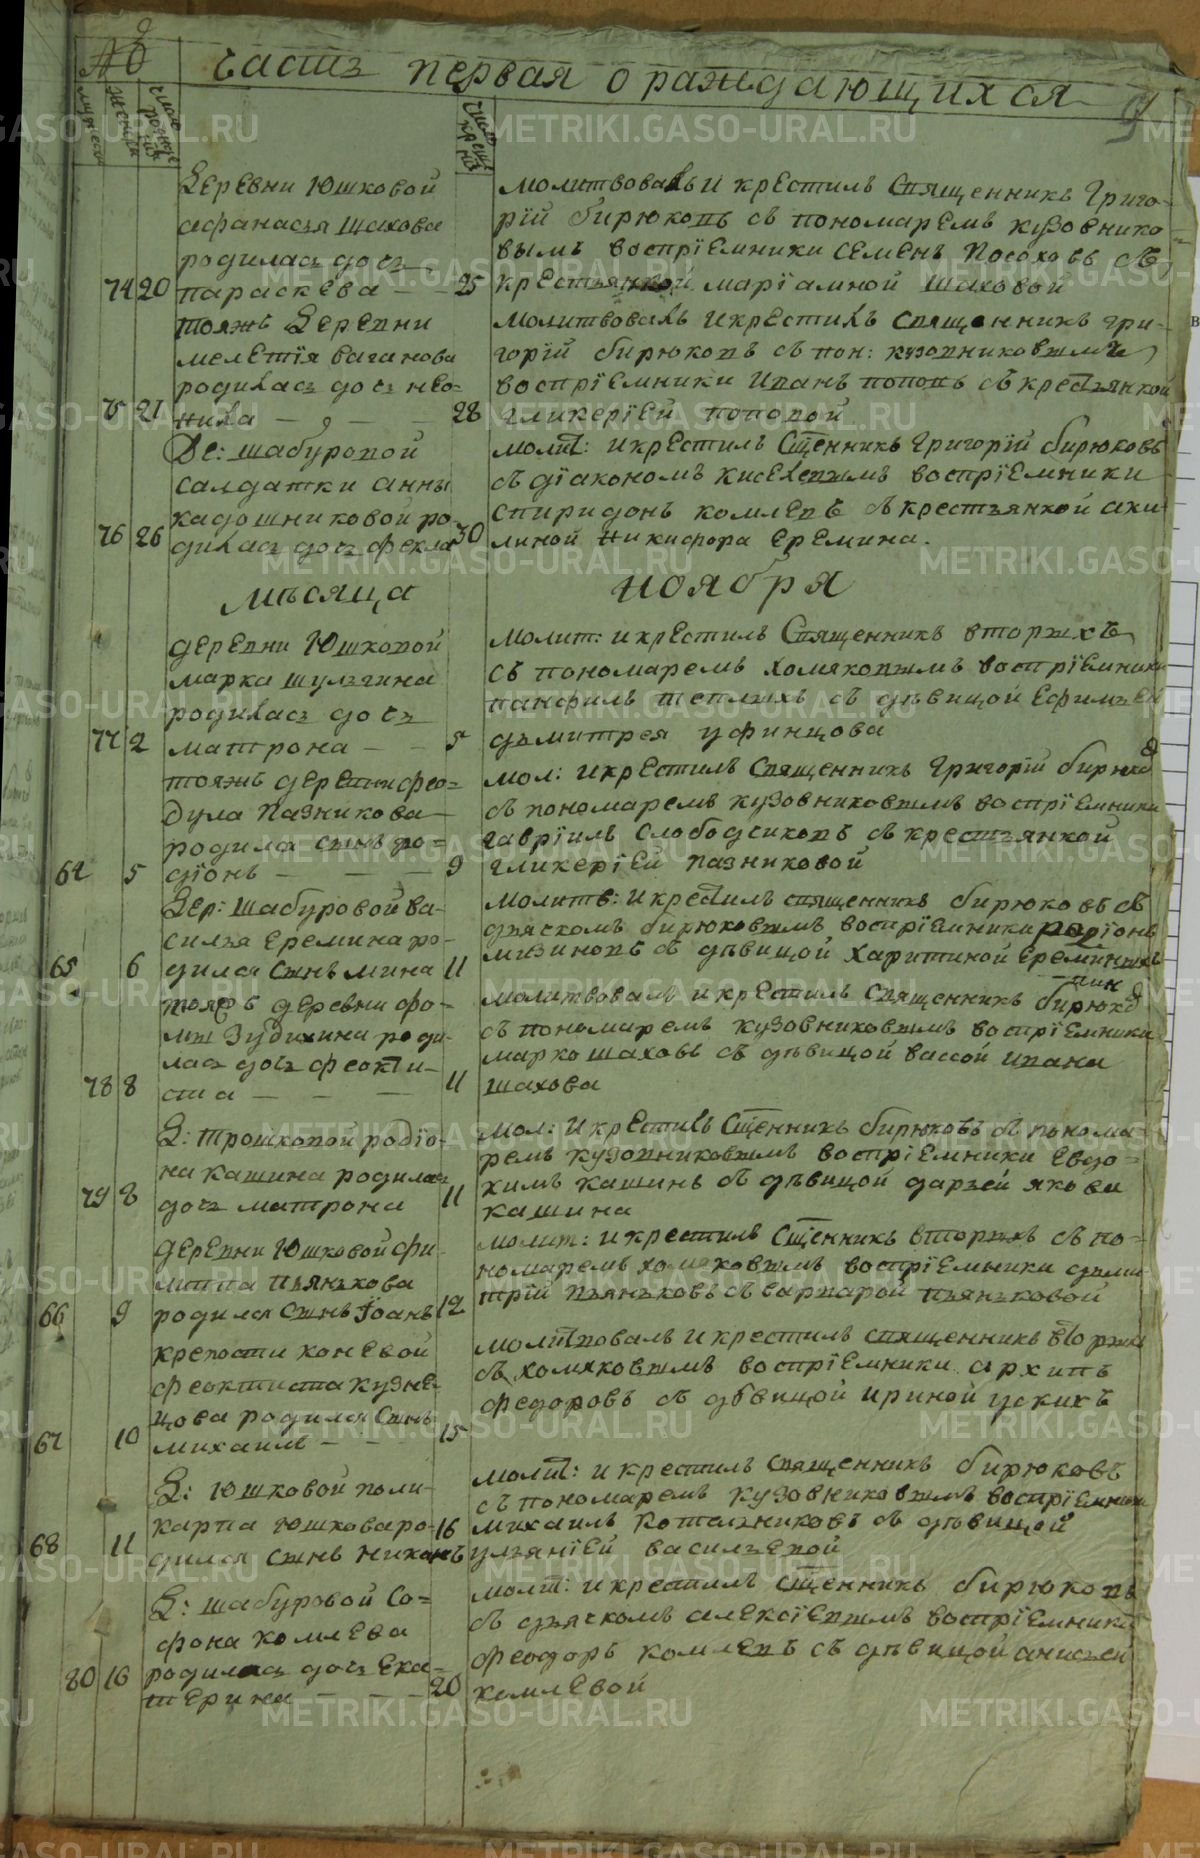 часть первая о раждающихся
9
деревни Юшковой
афанасья шахова
родилась дочь
74 20 параскева — — 25
молитвовалъ и крестилъ Священникъ Григо-
рій бирюковъ съ пономаремъ кузовнико-
вымъ воспріемники семенъ Посоховъ съ
крестьянкой маріамной шаховой
тояжъ деревни
мелетія ваганова
родилась дочь нео=
75 21 нила — — — 28
молитвовалъ и крестилъ священникъ гри-
горій бирюковъ съ пон: кузовниковымъ
воспріемники Иванъ поповъ съ крестьянкой
гликеріей поповой
Де: шабуровой
салдатки анны
кадошниковой ро
76 26 дилась дочь фекла 30
молит: и крестилъ Сщенникъ Григорій бирюковъ
съ діакономъ киселевымъ воспріемники
спиридонъ комлевъ съ крестьянкой аки-
линой никифора еремина.
мѣсяца ноября
деревни Юшковой
марка шульгина
родилась дочь
77 2 матрона — — 5
молит: и крестилъ Священникъ вторыхъ
съ пономаремъ хомяковымъ воспріемники
панфилъ теплыхъ съ дѣвицой Ефимьей
дьмитрея уфинцова
тояжъ деревни фео=
дула Пазникова
родился сынъ ро=
64 5 діонъ — — — 9
мол: и крестилъ Священникъ Григорій бирюко
съ пономаремъ кузовниковымъ воспріемники
гавріилъ слободчиковъ съ крестьянкой
гликеріей пазниковой
Дер: шабуровой ва-
силья еремина ро-
65 6 дился сынъ мина 11
молитв: и крестилъ священникъ бирюковъ съ
дьяскомъ бирюковымъ воспріемники родіонъ
мизиновъ съ дѣвицой Харитиной ереминыхъ
тояжъ деревни фо-
мы Зубихина роди-
лась дочь феокти-
78 8 ста — — — 11
молитвовалъ и крестилъ священникъ бирюко
съ пономаремъ кузовниковымъ воспріемники
марко шаховъ съ дѣвицой вассой ивана
шахова
Д: трошковой родіо-
на кашина родилась
79 8 дочь матрона 11
мол: и крестилъ Сщенникъ бирюковъ съ понома-
ремъ кузовниковымъ воспріемники Евдо=
химъ кашинъ съ дѣвицой дарьей якова
кашина
деревни Юшковой фи-
липпа пьянкова
66 9 родился сынъ Іоанъ 12
молит: и крестилъ Сщенникъ вторыхъ съ по-
номаремъ хомяковымъ воспріемники дьми-
трій пьянковъ съ варварой пьянковой
крепости коневой
феоктиста кузне-
цова родился сынъ
67 10 михаилъ — — 15
молитвовалъ и крестилъ священникъ вторыхъ
съ хомяковымъ воспріемники архипъ
федоровъ съ дѣвицой ириной ускихъ
Д: Юшковой поли-
карпа юшкова ро- 16
68 11 дился сынъ никонъ
молит: и крестилъ священникъ бирюковъ
съ пономаремъ кузовниковымъ воспріемники
михаилъ котельниковъ съ дѣвицой
ульяніей васильевой
Д: шабуровой Со=
фона комлева
80 16 родилась дочь Ека=
терина — — — 20
молит: и крестилъ сщенникъ бирюковъ
съ дьяскомъ алексіевымъ воспріемники
феодоръ комлевъ съ дѣвицой анисьей
комлевой
METRIKI.GASO-URAL.RU